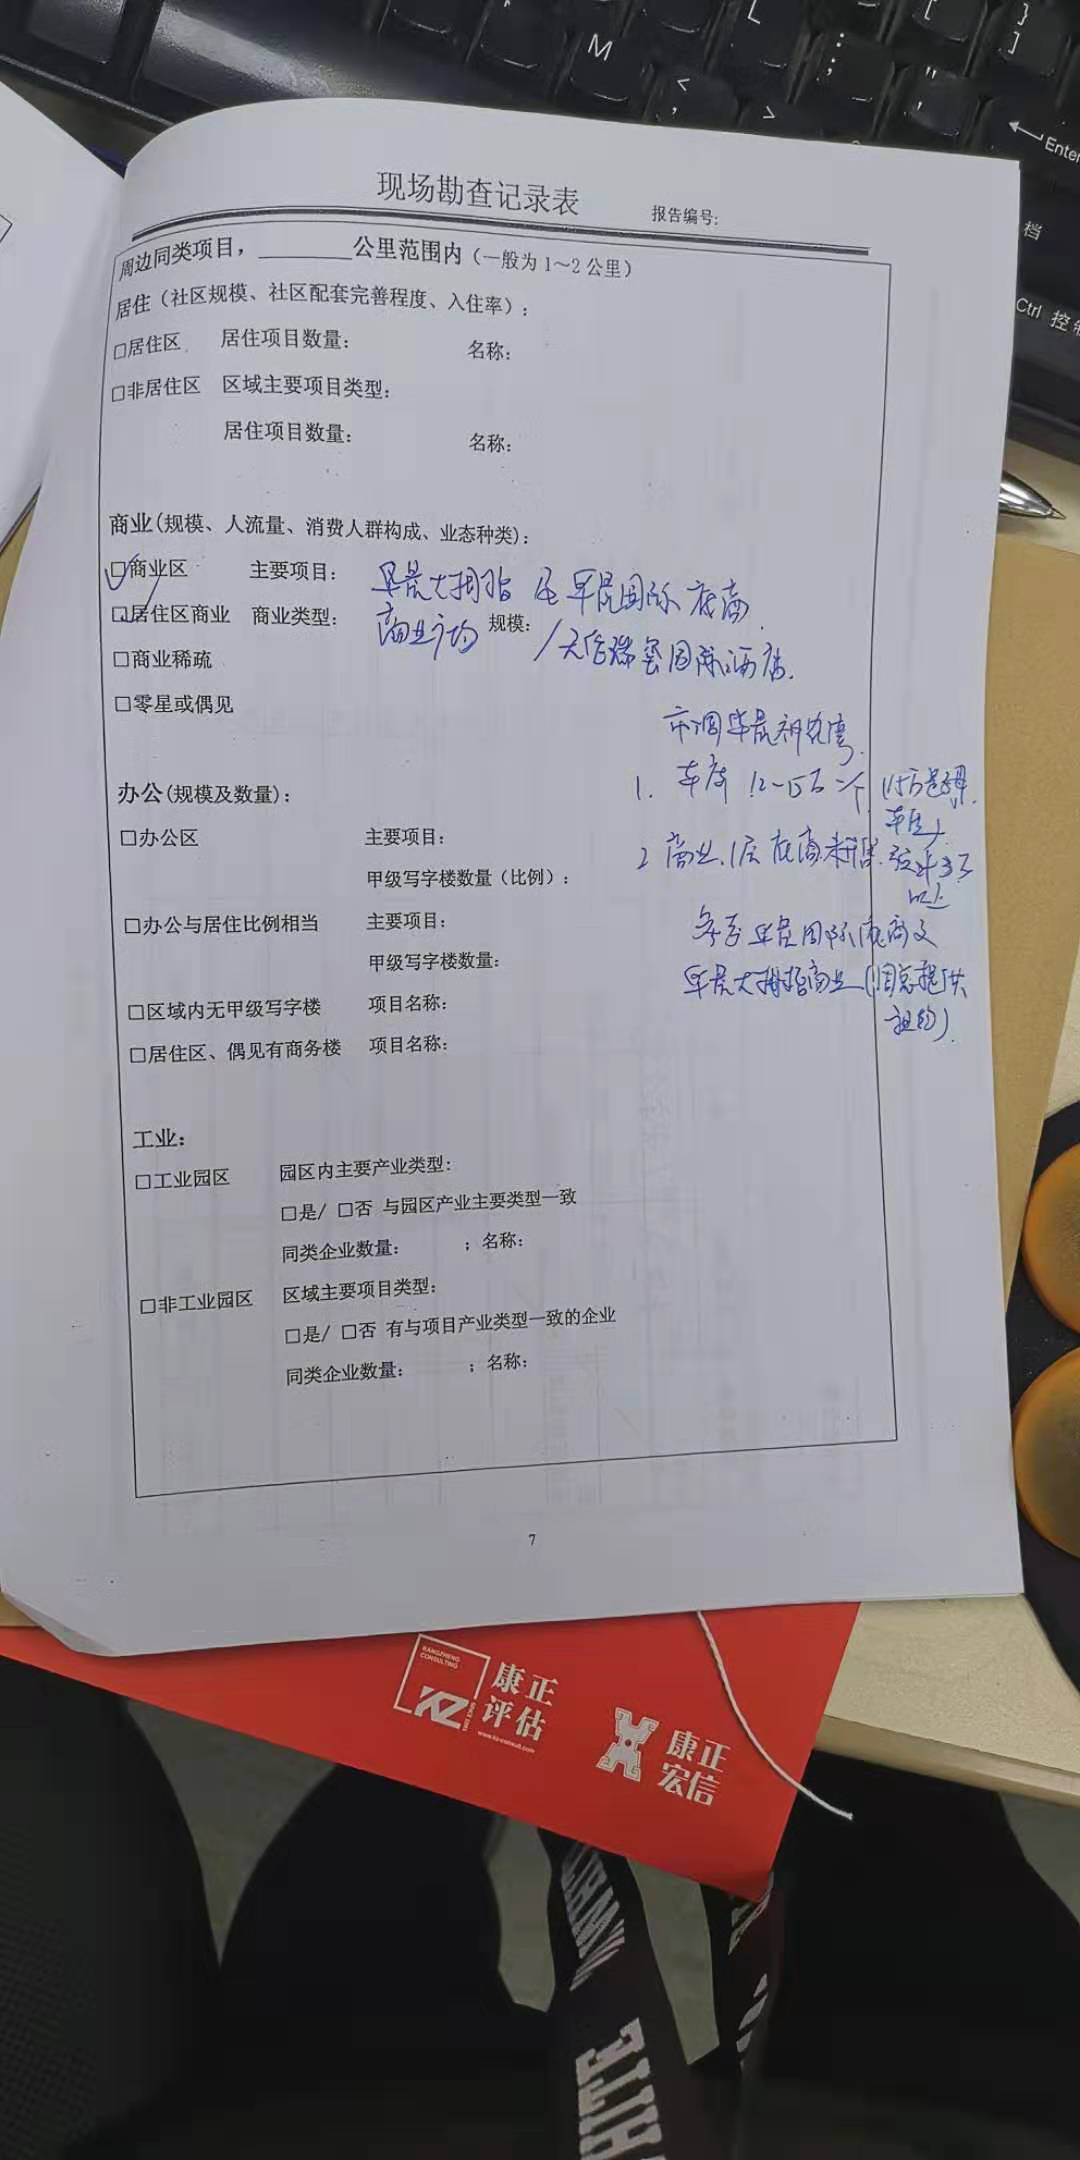 M
Enter
档
Ctrl 控制
现场勘查记录表
报告编号:
周边同类项目，________公里范围内（一般为1～2公里）
居住（社区规模、社区配套完善程度、入住率）:
□居住区 居住项目数量: 名称:
□非居住区 区域主要项目类型:
居住项目数量: 名称:
商业(规模、人流量、消费人群构成、业态种类):
□商业区 主要项目: 大拇指 国际底商
□居住区商业 商业类型: 商业广场 规模: / 国际酒店.
□商业稀疏
□零星或偶见
市调
办公(规模及数量):
1. 车库 12-15万一个
□办公区 主要项目:
2 商业、1层底商
甲级写字楼数量（比例）:
以上
□办公与居住比例相当 主要项目:
国际底商及
甲级写字楼数量:
大拇指商业
□区域内无甲级写字楼 项目名称:
□居住区、偶见有商务楼 项目名称:
工业:
□工业园区 园区内主要产业类型:
□是/ □否 与园区产业主要类型一致
同类企业数量: ；名称:
□非工业园区 区域主要项目类型:
□是/ □否 有与项目产业类型一致的企业
同类企业数量: ；名称:
7
KANGZHENG
CONSULTING
KZ
康正
评估
康正
宏信